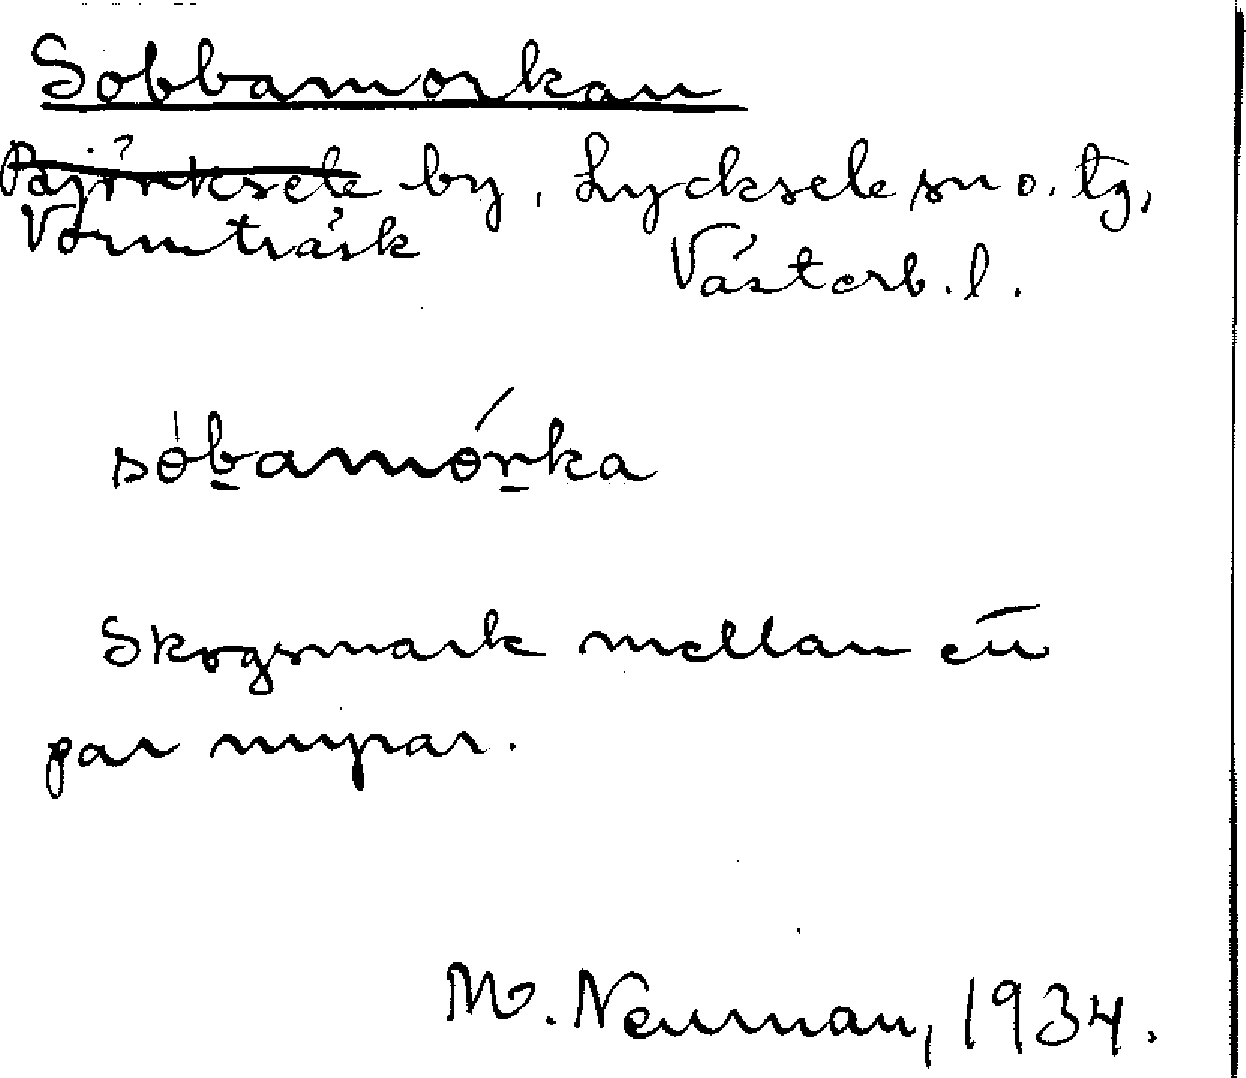 Sobbamorkan
Pajörtksele by, Lycksele sn o. tg,
Vormträsk
Västerb. l.
sóbamórka
Skogsmark mellan ett
par myrar.
M. Neuman, 1934.